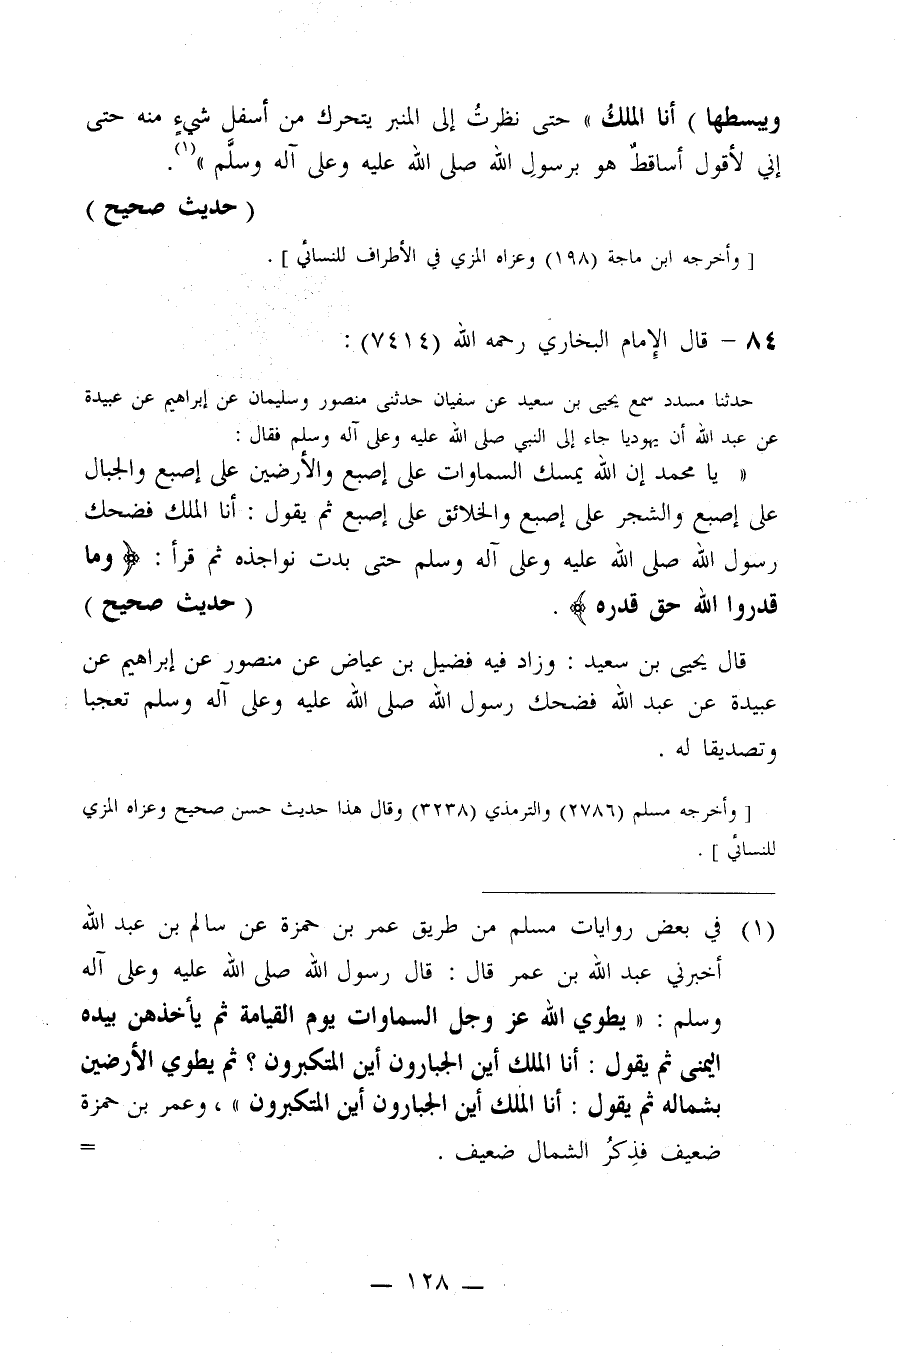 ويبسطها ) أنا الملكُ » حتى نظرتُ إلى المنبر يتحرك من أسفل شيءٍ منه حتى
إني لأقول أساقطٌ هو برسولِ الله صلى الله عليه وعلى آله وسلَّم »(١).
( حديث صحيح )
[ وأخرجه ابن ماجة (١٩٨) وعزاه المزي في الأطراف للنسائي ] .
٨٤ – قال الإمام البخاري رحمه الله (٧٤١٤) :
حدثنا مسدد سمع يحيى بن سعيد عن سفيان حدثنى منصور وسليمان عن إبراهيم عن عبيدة
عن عبد الله أن يهوديا جاء إلى النبي صلى الله عليه وعلى آله وسلم فقال :
« يا محمد إن الله يمسك السماوات على إصبع والأرضين على إصبع والجبال
على إصبع والشجر على إصبع والخلائق على إصبع ثم يقول : أنا الملك فضحك
رسول الله صلى الله عليه وعلى آله وسلم حتى بدت نواجذه ثم قرأ : ﴿ وما
قدروا الله حق قدره ﴾ . ( حديث صحيح )
قال يحيى بن سعيد : وزاد فيه فضيل بن عياض عن منصور عن إبراهيم عن
عبيدة عن عبد الله فضحك رسول الله صلى الله عليه وعلى آله وسلم تعجبا
وتصديقا له .
[ وأخرجه مسلم (٢٧٨٦) والترمذي (٣٢٣٨) وقال هذا حديث حسن صحيح وعزاه المزي
للنسائي ] .
(١) في بعض روايات مسلم من طريق عمر بن حمزة عن سالم بن عبد الله
أخبرني عبد الله بن عمر قال : قال رسول الله صلى الله عليه وعلى آله
وسلم : « يطوي الله عز وجل السماوات يوم القيامة ثم يأخذهن بيده
اليمنى ثم يقول : أنا الملك أين الجبارون أين المتكبرون ؟ ثم يطوي الأرضين
بشماله ثم يقول : أنا الملك أين الجبارون أين المتكبرون » ، وعمر بن حمزة
ضعيف فذِكرُ الشمال ضعيف . =
— ١٢٨ —